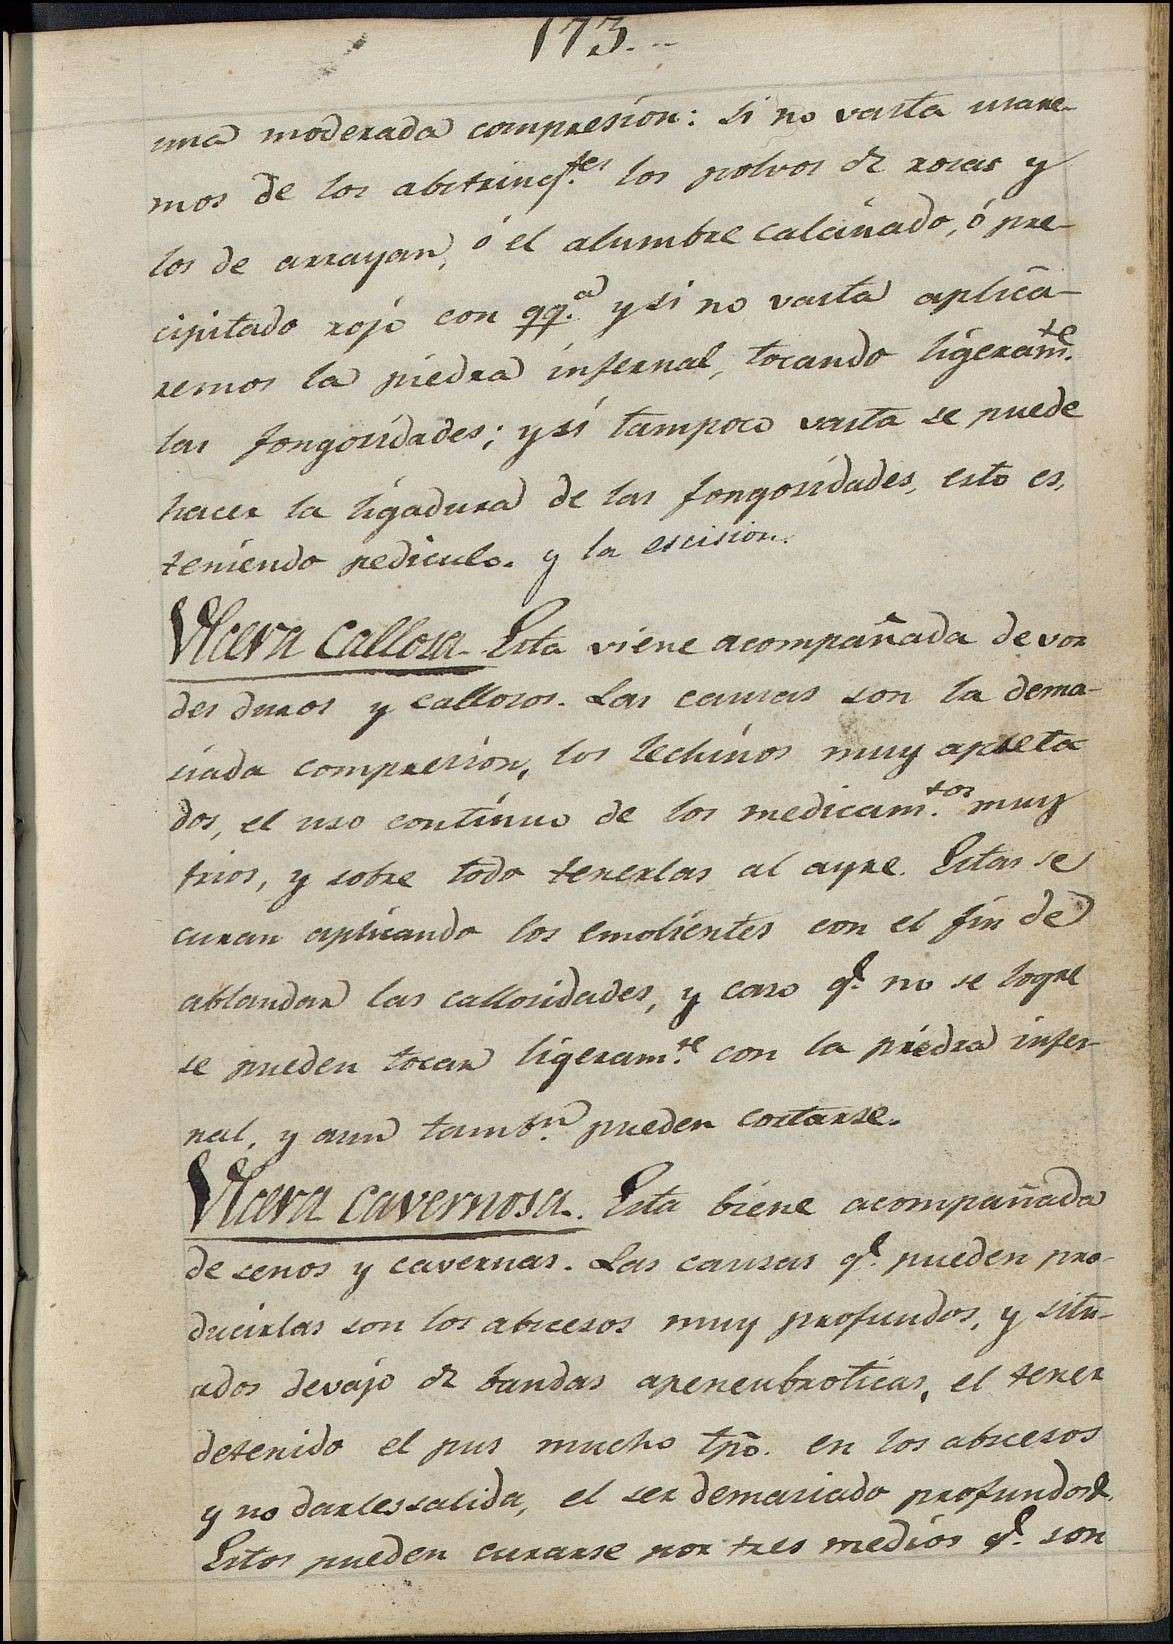 173...
una moderada compresion: si no vasta usare-
mos de los abstring.tes los polvos de rosas y
los de arrayan, ó el alumbre calcinado, ó pre-
cipitado rojo con qq.a y si no vasta aplica-
remos la piedra infernal, tocando ligeram.te
las fongosidades; y si tampoco vasta se puede
hacer la ligadura de las fongosidades, esto es,
teniendo pediculo. y la escision.
Ulcera callosa. Esta viene acompañada de vor
des duros y callosos. Las causas son la dema-
siada compresion, los lechinos muy apreta
dos, el uso continuo de los medicam.tos muy
frios, y sobre todo tenerlas al ayre. Estas se
curan aplicando los emolientes con el fin de
ablandar las callosidades, y caso q.e no se logre
se pueden tocar ligeram.te con la piedra infer-
nal, y aun tamb.n pueden cortarse.
Ulcera cavernosa. Esta biene acompañada
de senos y cavernas. Las causas q.e pueden pro-
ducirlas son los abscesos muy profundos, y situ-
ados devajo de bandas apeneubroticas, el tener
detenido el pus mucho tpõ. en los abscesos
y no darles salida, el ser demasiado profundos &.
Estos pueden curarse por tres medios q.e son